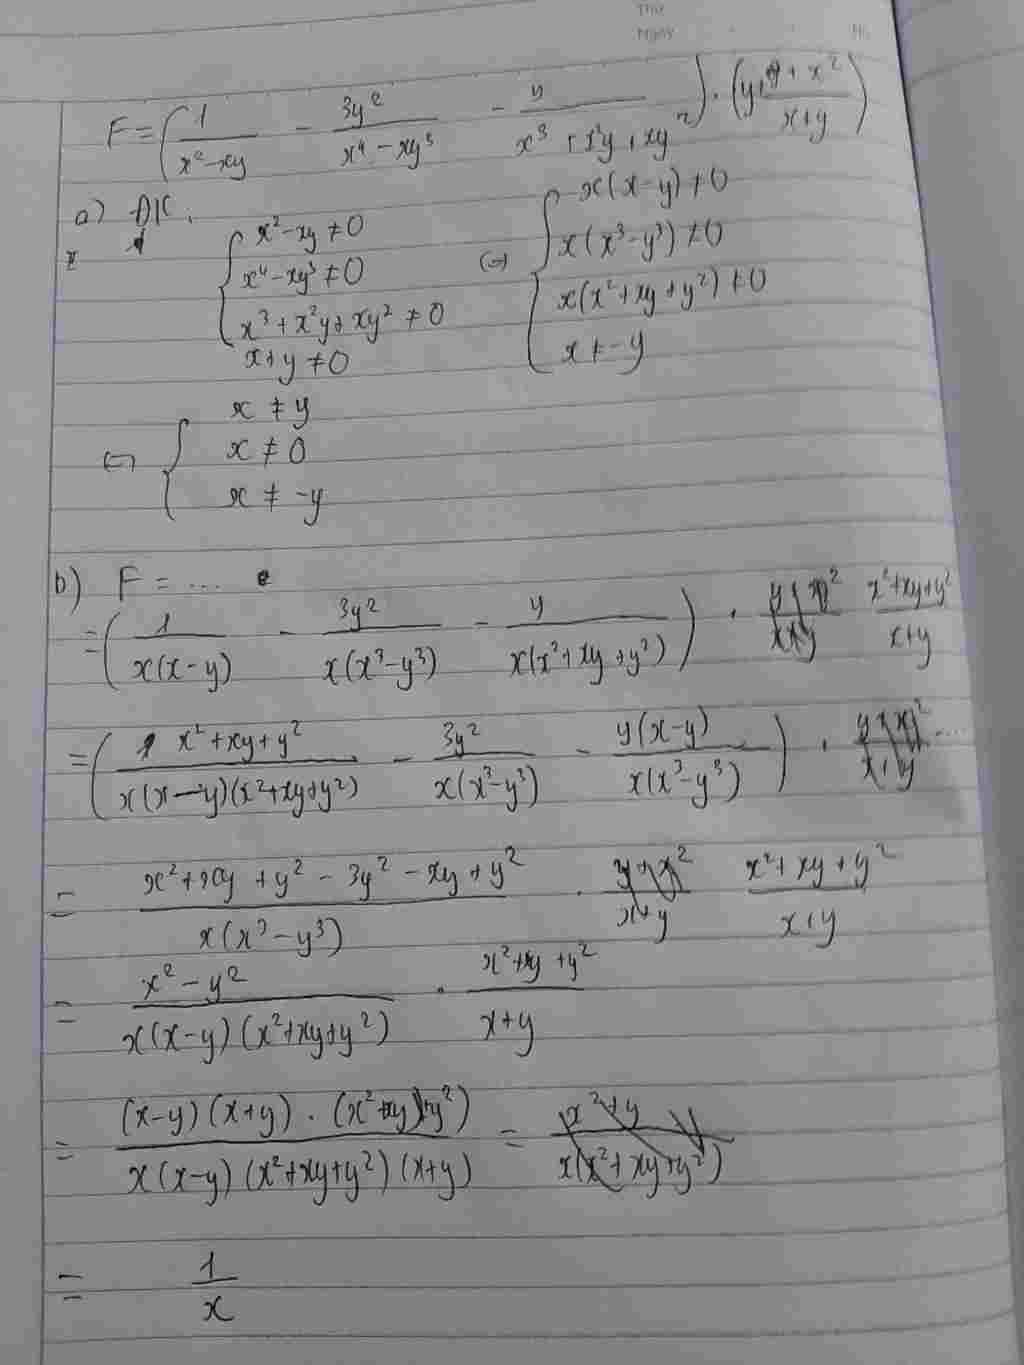 Thứ
Ngày No.
F = (1/(x²-xy) - 3y²/(x⁴-xy³) - y/(x³+x²y+xy²)) · (y + x²/(x+y))
a) ĐK:
{ x²-xy ≠ 0
x⁴-xy³ ≠ 0
x³+x²y+xy² ≠ 0
x+y ≠ 0
⇔ { x(x-y) ≠ 0
x(x³-y³) ≠ 0
x(x²+xy+y²) ≠ 0
x ≠ -y
⇔ { x ≠ y
x ≠ 0
x ≠ -y
b) F = ...
= (1/(x(x-y)) - 3y²/(x(x³-y³)) - y/(x(x²+xy+y²))) · (x²+xy+y²)/(x+y)
= ((x²+xy+y²)/(x(x-y)(x²+xy+y²)) - 3y²/(x(x³-y³)) - y(x-y)/(x(x³-y³))) · ...
= (x²+xy+y²-3y²-xy+y²)/(x(x³-y³)) · (x²+xy+y²)/(x+y)
= (x²-y²)/(x(x-y)(x²+xy+y²)) · (x²+xy+y²)/(x+y)
= ((x-y)(x+y)·(x²+xy+y²))/(x(x-y)(x²+xy+y²)(x+y)) = (x²+y)/(x(x²+xy+y²))
= 1/x